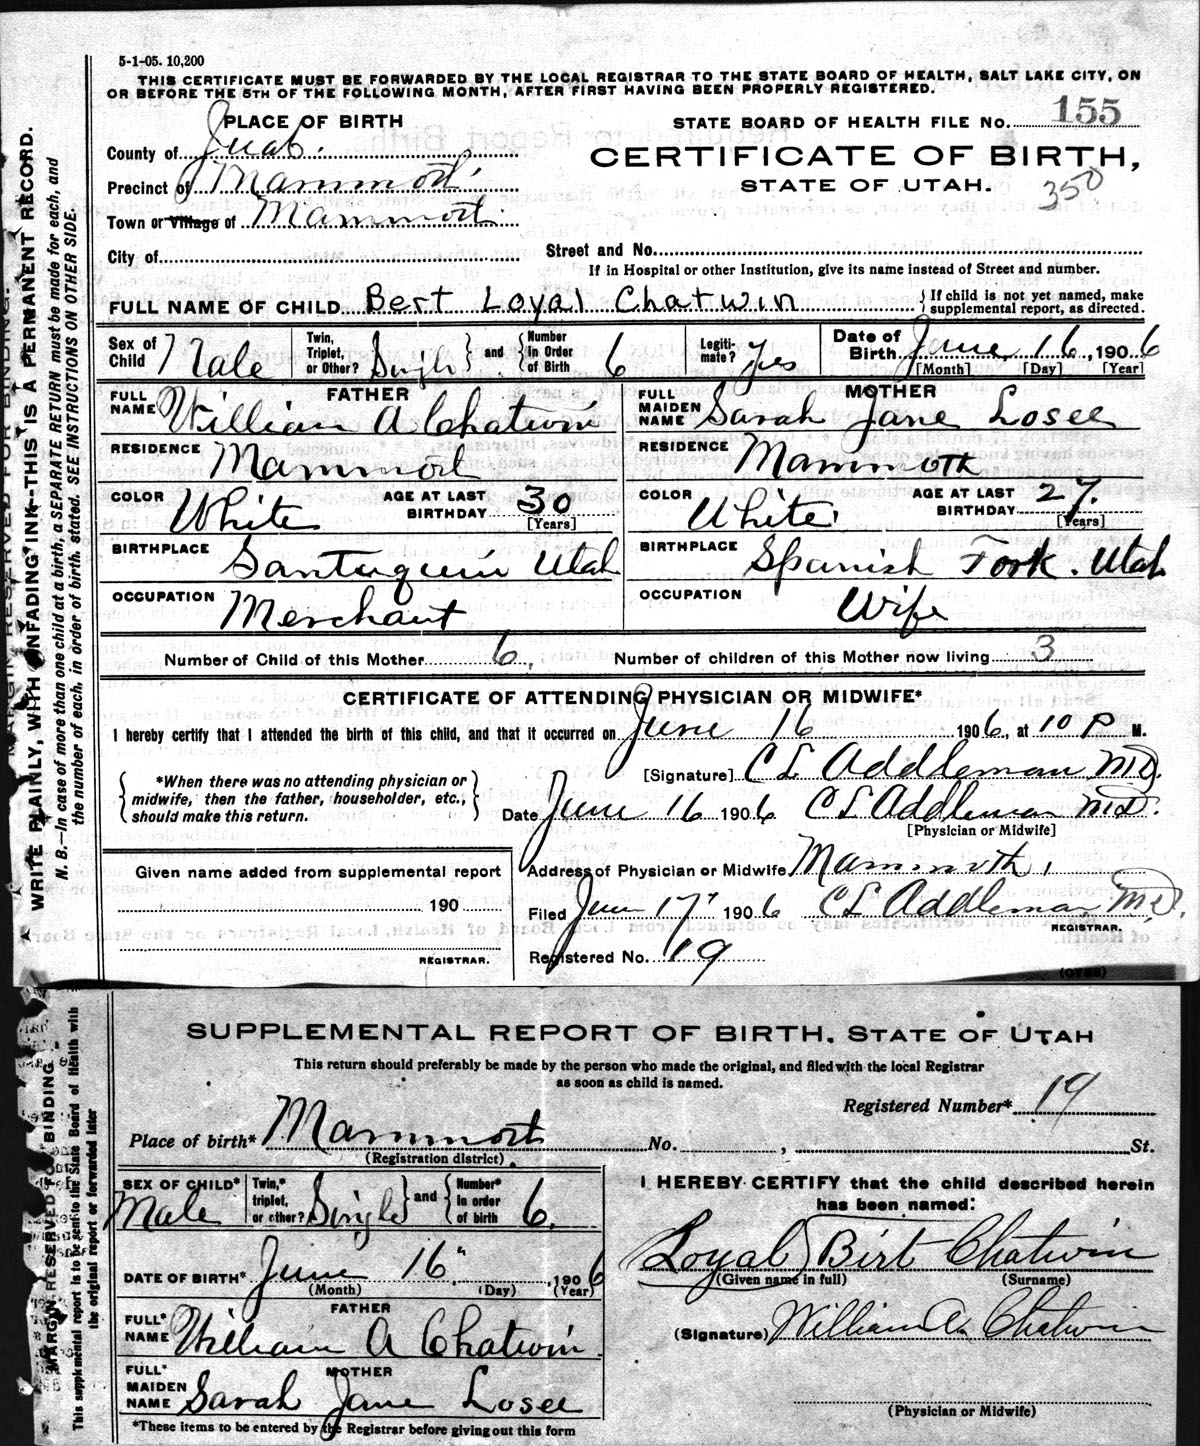 5-1-05. 10,200
THIS CERTIFICATE MUST BE FORWARDED BY THE LOCAL REGISTRAR TO THE STATE BOARD OF HEALTH, SALT LAKE CITY, ON
OR BEFORE THE 5TH OF THE FOLLOWING MONTH, AFTER FIRST HAVING BEEN PROPERLY REGISTERED.
PLACE OF BIRTH
STATE BOARD OF HEALTH FILE No. 155
County of Juab.
CERTIFICATE OF BIRTH,
STATE OF UTAH.
350
Precinct of Mammoth
Town or Village of Mammoth
City of
Street and No.
If in Hospital or other Institution, give its name instead of Street and number.
FULL NAME OF CHILD Bert Loyal Chatwin { If child is not yet named, make supplemental report, as directed.
Sex of Child Male Twin, Triplet, or Other? Single and Number in Order of Birth 6 Legiti-mate? Yes Date of Birth June 16, 1906
[Month] [Day] [Year]
FATHER
FULL NAME William A Chatwin
MOTHER
FULL MAIDEN NAME Sarah Jane Losee
RESIDENCE Mammoth
RESIDENCE Mammoth
COLOR White AGE AT LAST BIRTHDAY 30 [Years]
COLOR White AGE AT LAST BIRTHDAY 27. [Years]
BIRTHPLACE Santaquin Utah
BIRTHPLACE Spanish Fork. Utah
OCCUPATION Merchant
OCCUPATION Wife
Number of Child of this Mother 6, Number of children of this Mother now living 3
CERTIFICATE OF ATTENDING PHYSICIAN OR MIDWIFE*
I hereby certify that I attended the birth of this child, and that it occurred on June 16 1906, at 10 P M.
*When there was no attending physician or
midwife, then the father, householder, etc.,
should make this return.
[Signature] CL Addleman MD.
Date June 16 1906 CL Addleman MD.
[Physician or Midwife]
Given name added from supplemental report
190
REGISTRAR.
Address of Physician or Midwife Mammoth,
Filed June 17" 1906 CL Addleman M.D.
REGISTRAR.
Registered No. 19
(OVER)
MARGIN RESERVED FOR BINDING.
WRITE PLAINLY, WITH UNFADING INK--THIS IS A PERMANENT RECORD.
N. B.—In case of more than one child at a birth, a SEPARATE RETURN must be made for each, and
the number of each, in order of birth, stated. SEE INSTRUCTIONS ON OTHER SIDE.
SUPPLEMENTAL REPORT OF BIRTH. STATE OF UTAH
This return should preferably be made by the person who made the original, and filed with the local Registrar
as soon as child is named.
Registered Number* 19
Place of birth* Mammoth No. , St.
(Registration district)
SEX OF CHILD* Male Twin,* triplet, or other? Single and Number* in order of birth 6.
DATE OF BIRTH* June 16", 1906
(Month) (Day) (Year)
FATHER
FULL* NAME William A Chatwin
MOTHER
FULL* MAIDEN NAME Sarah Jane Losee
*These items to be entered by the Registrar before giving out this form
I HEREBY CERTIFY that the child described herein
has been named:
Loyal Birt Chatwin
(Given name in full) (Surname)
(Signature) William A. Chatwin
(Physician or Midwife)
MARGIN RESERVED FOR BINDING
This supplemental report is to be sent to the State Board of Health with
the original report or forwarded later